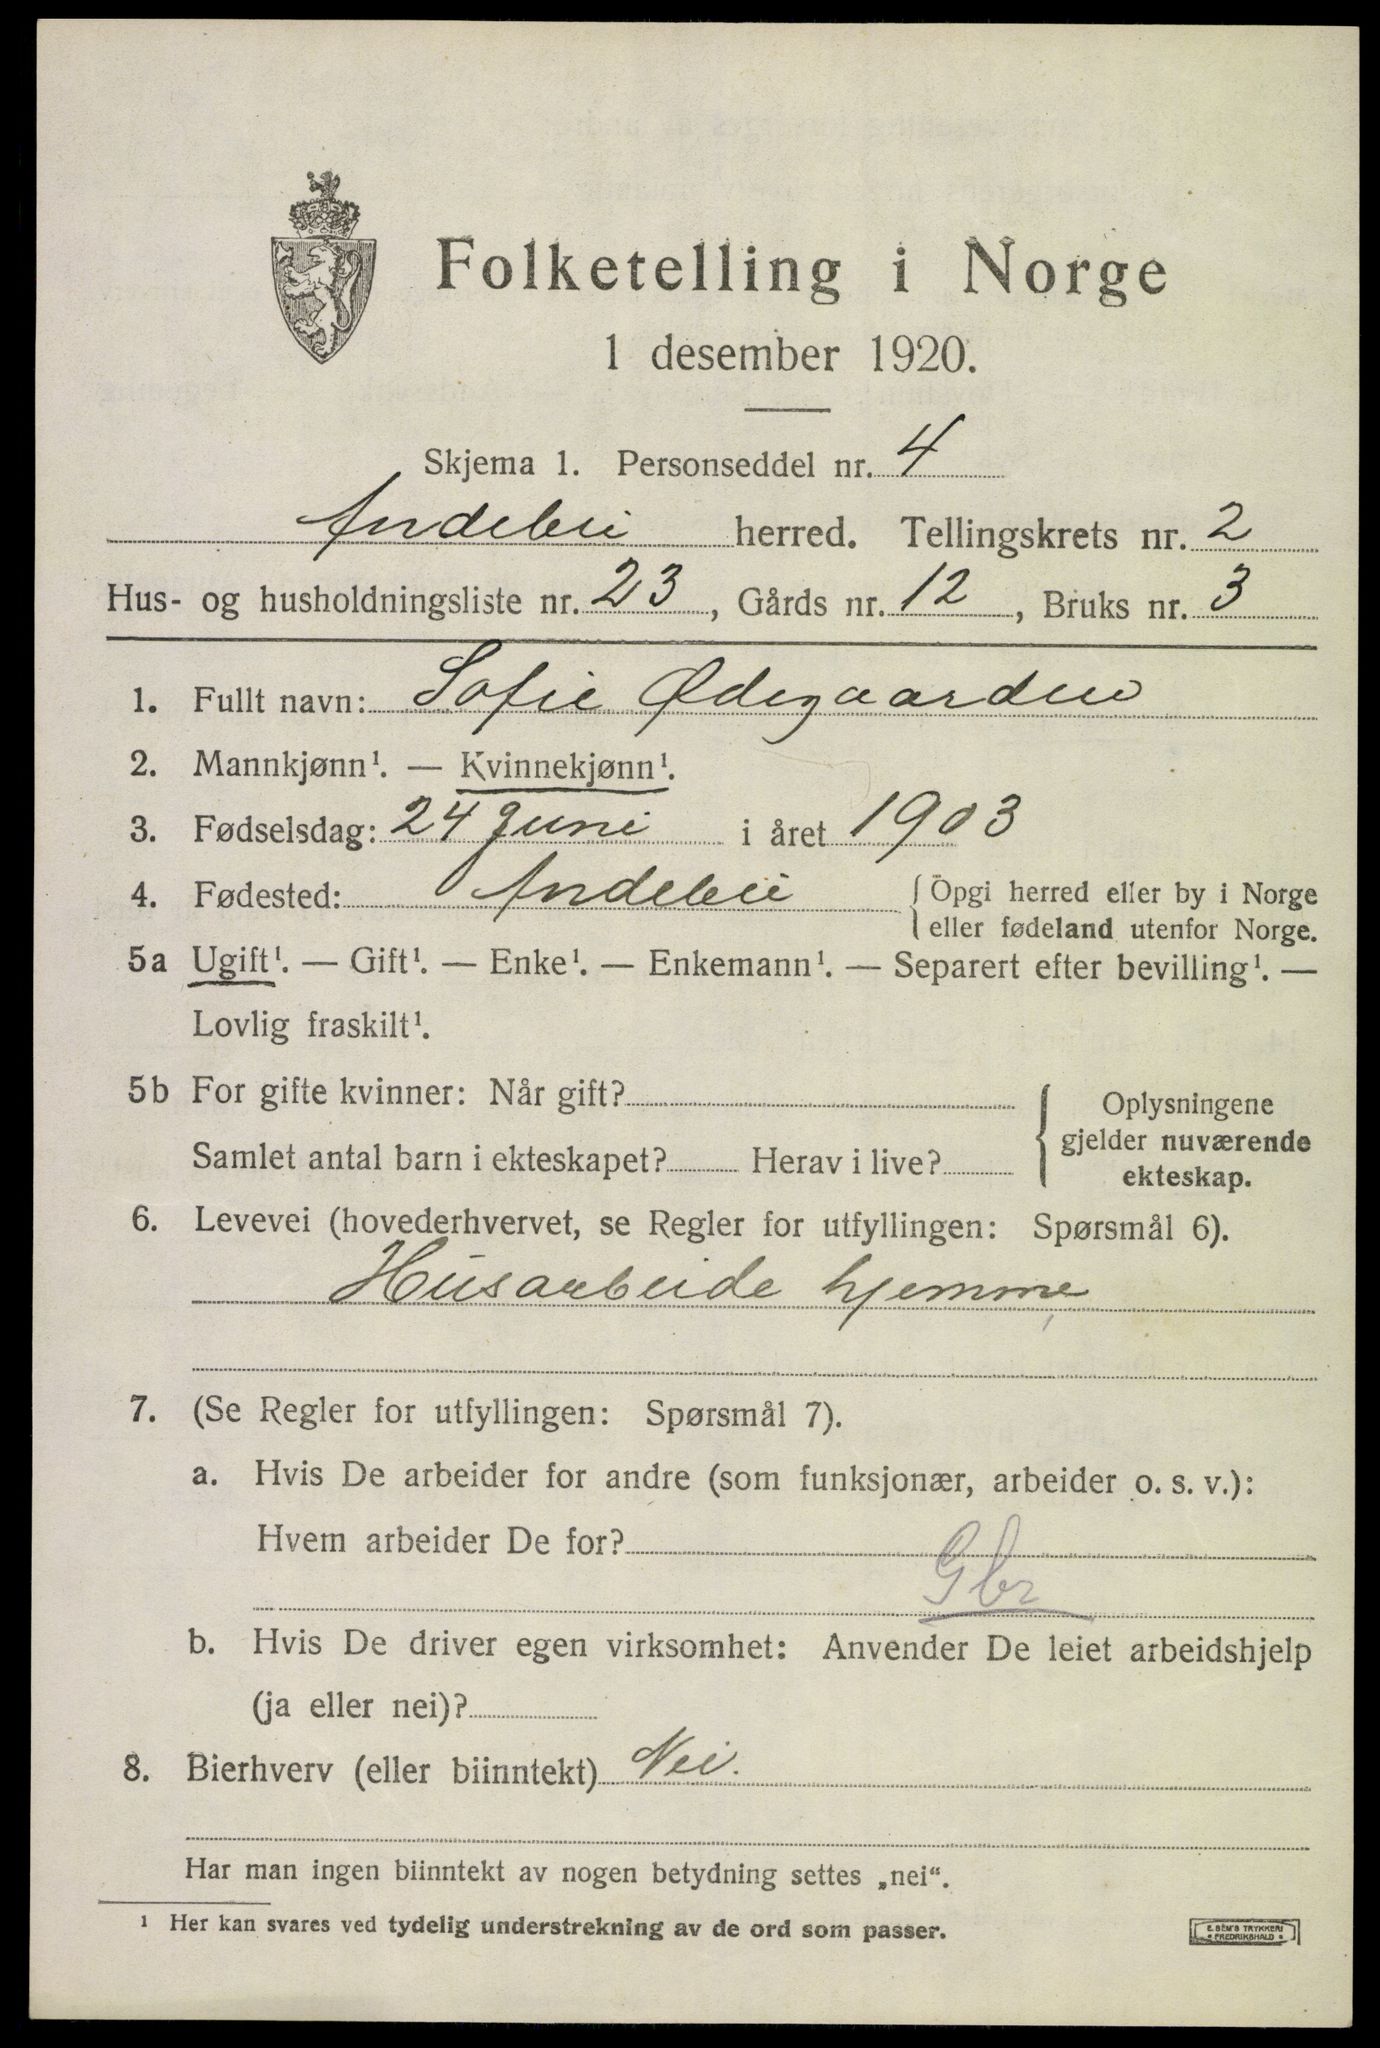 Folketelling i Norge
1 desember 1920.
Skjema 1. Personseddel nr. 4
Andebu herred. Tellingskrets nr. 2
Hus- og husholdningsliste nr. 23, Gårds nr. 12, Bruks nr. 3
1. Fullt navn: Sofie Ødegaarden
2. Mannkjønn¹. — Kvinnekjønn¹.
3. Fødselsdag: 24 Juni i året 1903
4. Fødested: Andebu { Opgi herred eller by i Norge
eller fødeland utenfor Norge.
5a Ugift¹. — Gift¹. — Enke¹. — Enkemann¹. — Separert efter bevilling¹. —
Lovlig fraskilt¹.
5b For gifte kvinner: Når gift?
Samlet antal barn i ekteskapet? Herav i live?
{ Oplysningene
gjelder nuværende
ekteskap.
6. Levevei (hovederhvervet, se Regler for utfyllingen: Spørsmål 6).
Husarbeide hjemme
7. (Se Regler for utfyllingen: Spørsmål 7).
a. Hvis De arbeider for andre (som funksjonær, arbeider o. s. v.):
Hvem arbeider De for?
Gbr
b. Hvis De driver egen virksomhet: Anvender De leiet arbeidshjelp
(ja eller nei)?
8. Bierhverv (eller biinntekt) Nei.
Har man ingen biinntekt av nogen betydning settes „nei“.
¹ Her kan svares ved tydelig understrekning av de ord som passer.
E. SEM'S TRYKKERI
• FREDRIKSHALD •